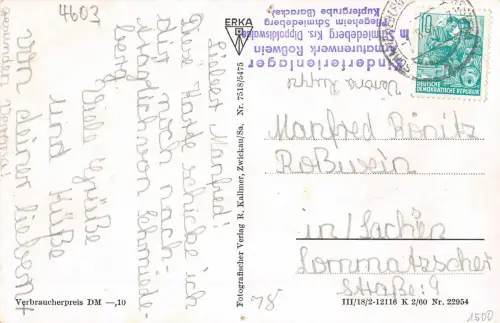 4603
Lieber Manfred!
Diese Karte schicke ich
dir noch nach-
träglich von Schmiede-
berg
Viele Grüße
und Küße
von deiner lieben
ERKA
Nr. 7518/5475
Fotografischer Verlag R. Kallmer, Zwickau/Sa.
Kinderferienlager
Armaturenwerk Roßwein
Schmiedeberg Krs. Dippoldiswalde
Pflegeheim Schmiedeberg
Kupfergrube (Baracke)
10
DEUTSCHE
DEMOKRATISCHE REPUBLIK
Manfred Rönitz
Roßwein
in/Sachsen
Lommatzscher
Straße 9
Verbraucherpreis DM —,10
78
III/18/2-12116 K 2/60 Nr. 22954
1500